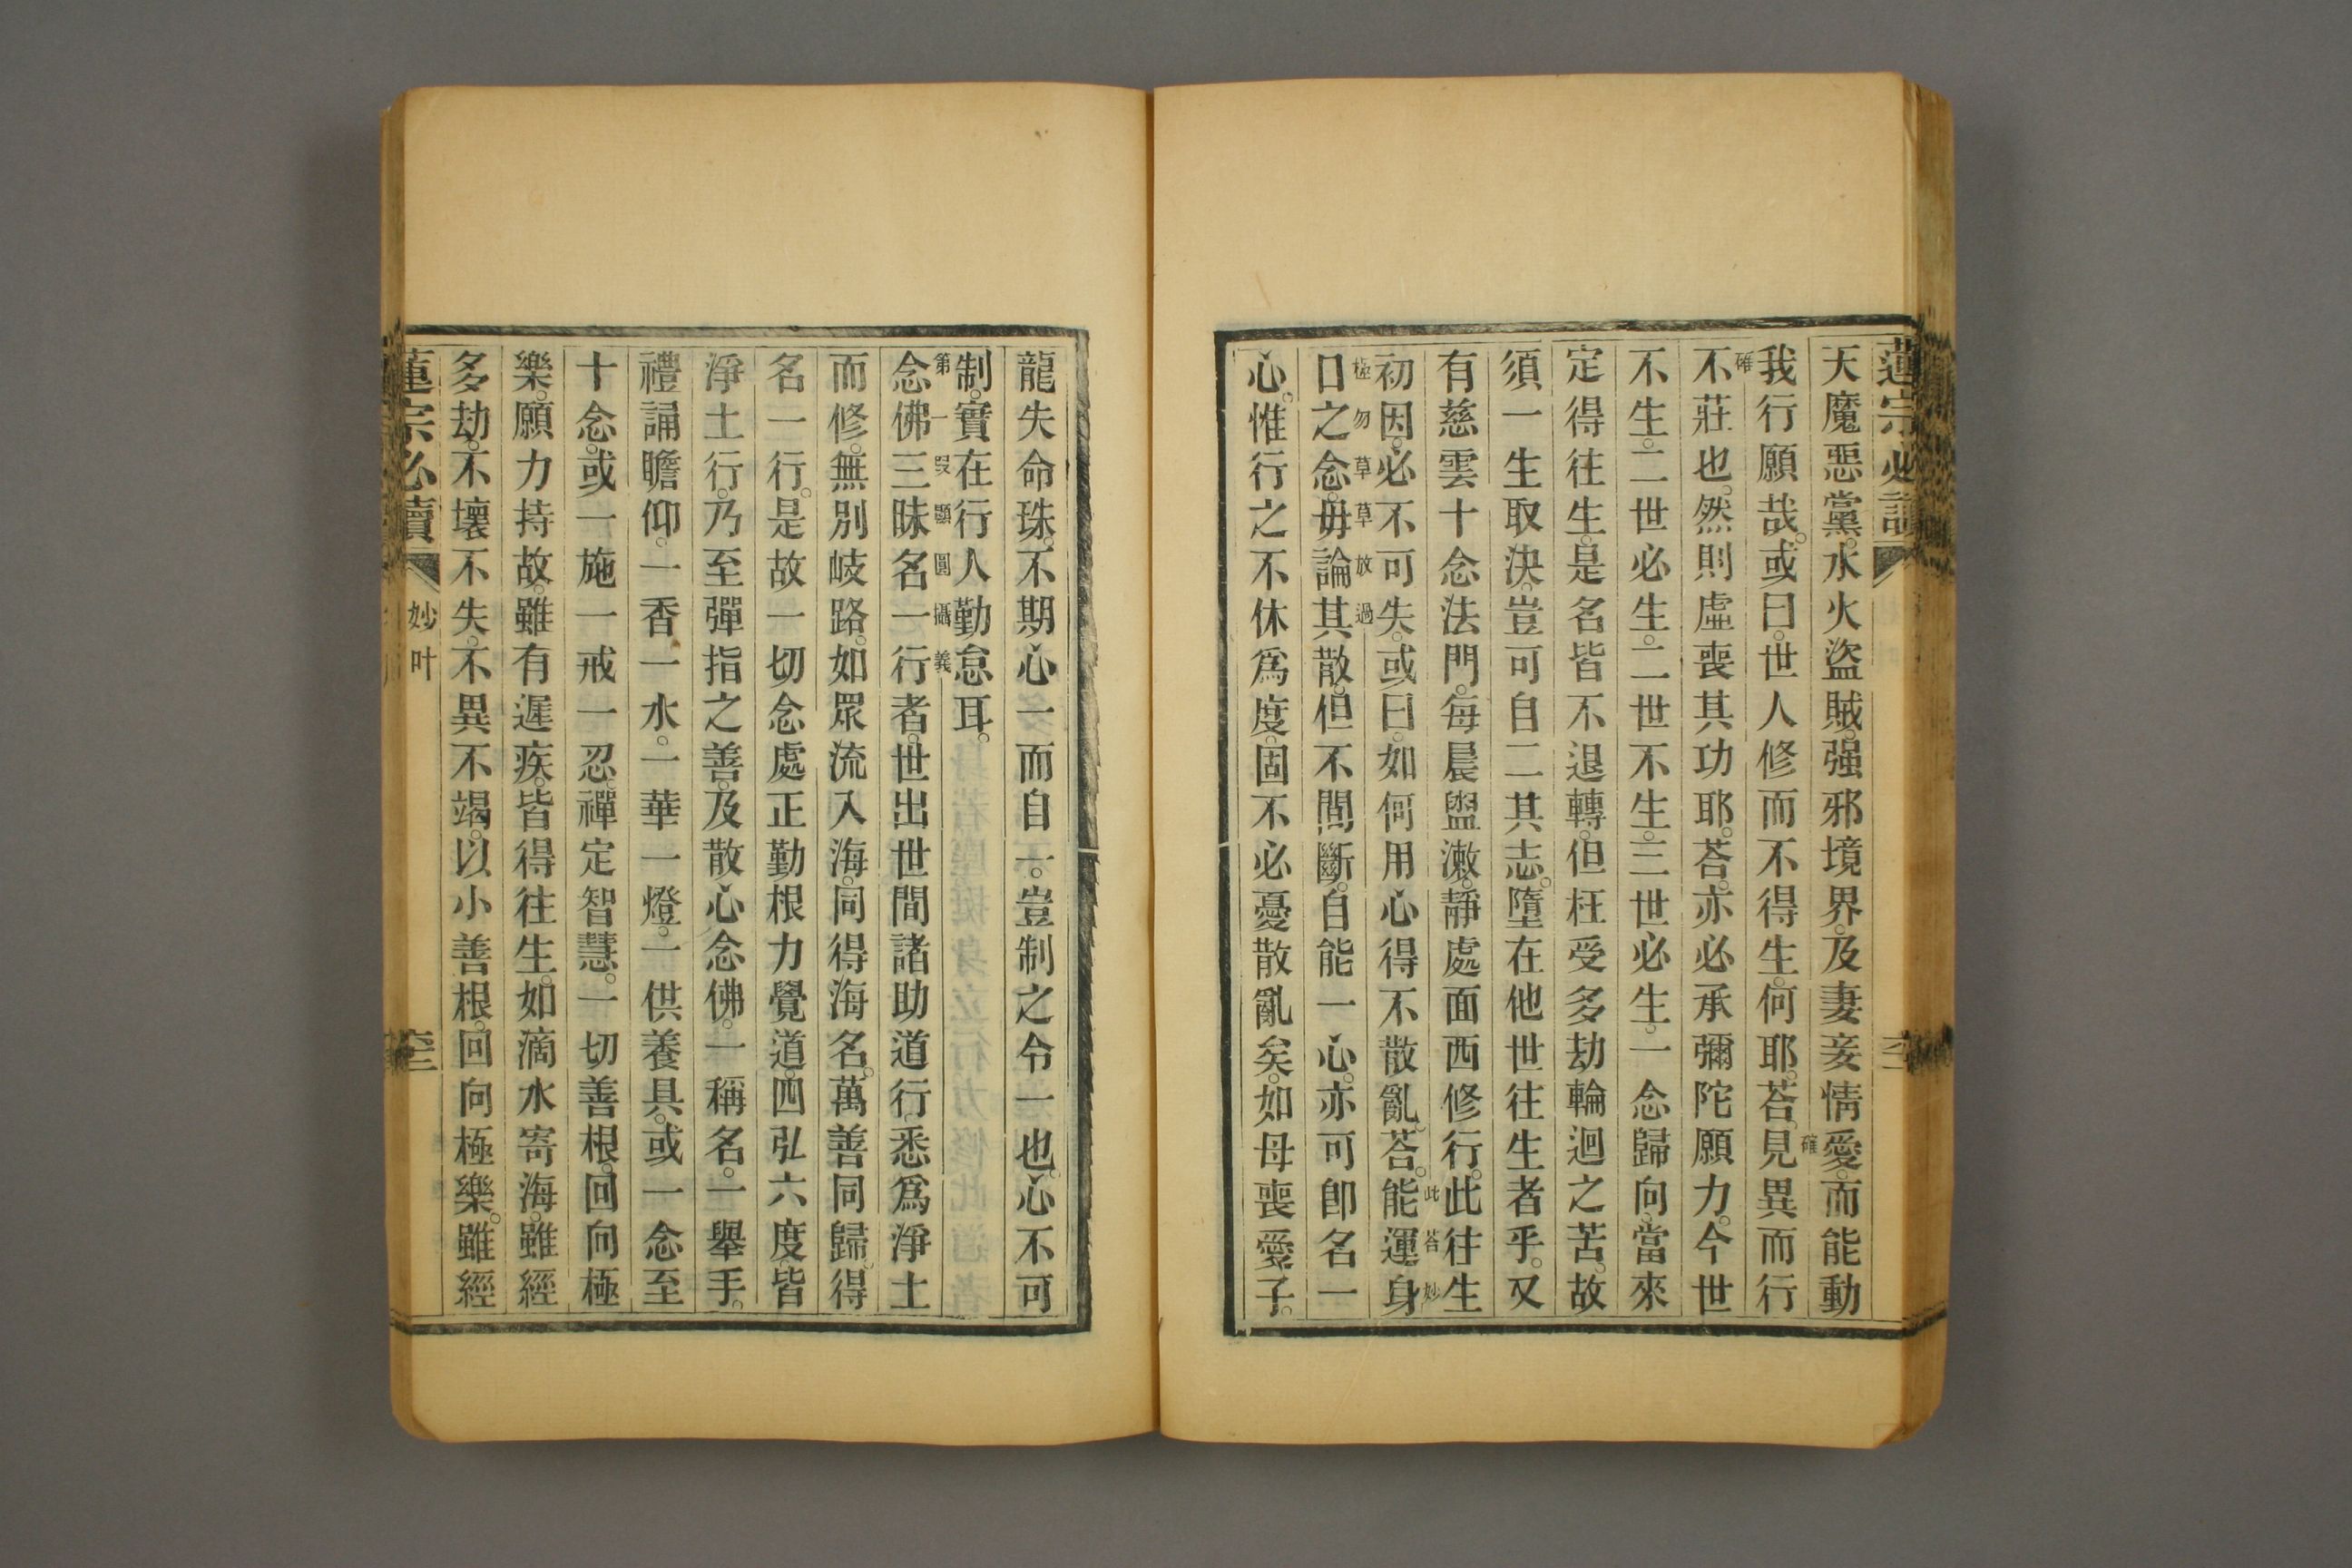 蓮宗必讀
天魔惡黨。水火盜賊。强邪境界。及妻妾情愛。而能動
我行願哉。或曰。世人修而不得生。何耶。荅。見異而行
確
不莊也。然則虛喪其功耶。荅。亦必承彌陀願力。今世
確
不生。二世必生。二世不生。三世必生。一念歸向。當來
定得往生。是名皆不退轉。但枉受多劫輪迴之苦。故
須一生取決。豈可自二其志。墮在他世往生者乎。又
有慈雲十念法門。每晨盥漱。靜處面西修行。此往生
初因。必不可失。或曰。如何用心得不散亂。荅。能運身
此荅妙極勿草草放過
口之念。毋論其散。但不間斷。自能一心。亦可卽名一
心。惟行之不休爲度。固不必憂散亂矣。如母喪愛子。
龍失命珠。不期心一而自一。豈制之令一也。心不可
制。實在行人勤怠耳。
第一叚顯圓攝義
念佛三昧名一行者。世出世間諸助道行。悉爲淨土
而修。無別岐路。如眾流入海。同得海名。萬善同歸。得
名一行。是故一切念處正勤根力覺道。四弘六度。皆
淨土行。乃至彈指之善。及散心念佛。一稱名。一舉手。
禮誦瞻仰。一香一水。一華一燈。一供養具。或一念至
十念。或一施一戒一忍。禪定智慧。一切善根。回向極
樂。願力持故。雖有遲疾。皆得往生。如滴水寄海。雖經
多劫。不壞不失。不異不竭。以小善根。回向極樂。雖經
蓮宗必讀 妙叶